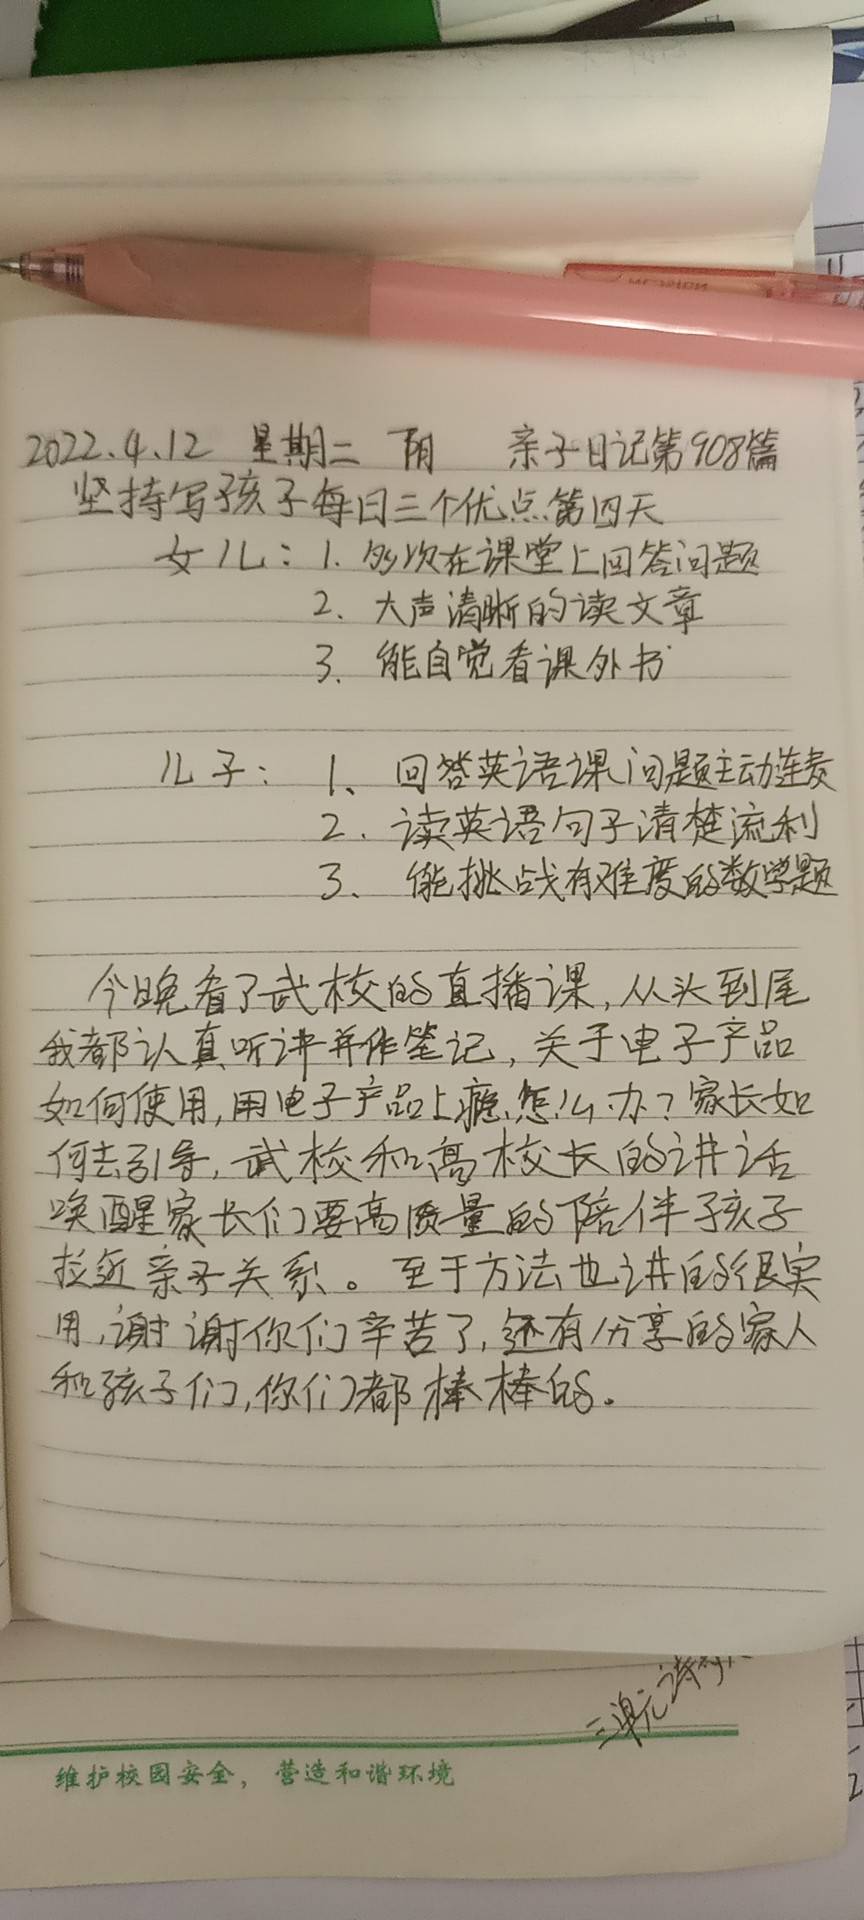 2022.4.12 星期二 阴 亲子日记第908篇
坚持写孩子每日三个优点第四天
女儿：1. 多次在课堂上回答问题
2. 大声清晰的读文章
3. 能自觉看课外书
儿子：1、回答英语课问题主动连麦
2. 读英语句子清楚流利
3. 能挑战有难度的数学题
今晚看了武校的直播课，从头到尾
我都认真听讲并作笔记，关于电子产品
如何使用，用电子产品上瘾怎么办？家长如
何去引导，武校和高校长的讲话
唤醒家长们要高质量的陪伴孩子
拉近亲子关系。至于方法也讲的很实
用，谢谢你们辛苦了，还有分享的家人
和孩子们，你们都棒棒的。
三单元诗
维护校园安全，营造和谐环境